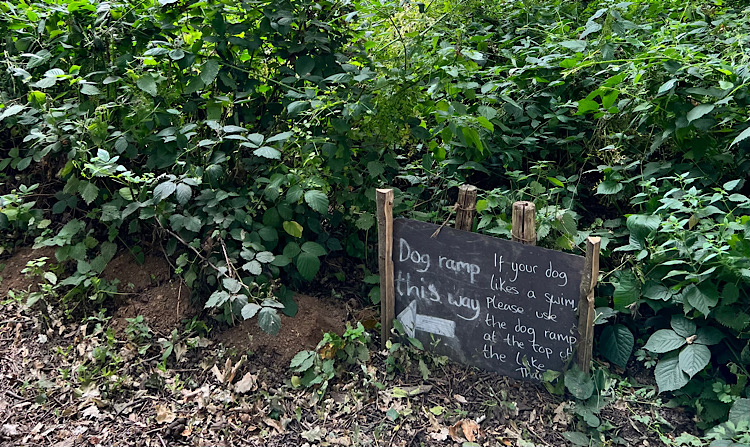 Dog ramp
this way
If your dog
likes a swim,
please use
the dog ramp
at the top of
the lake